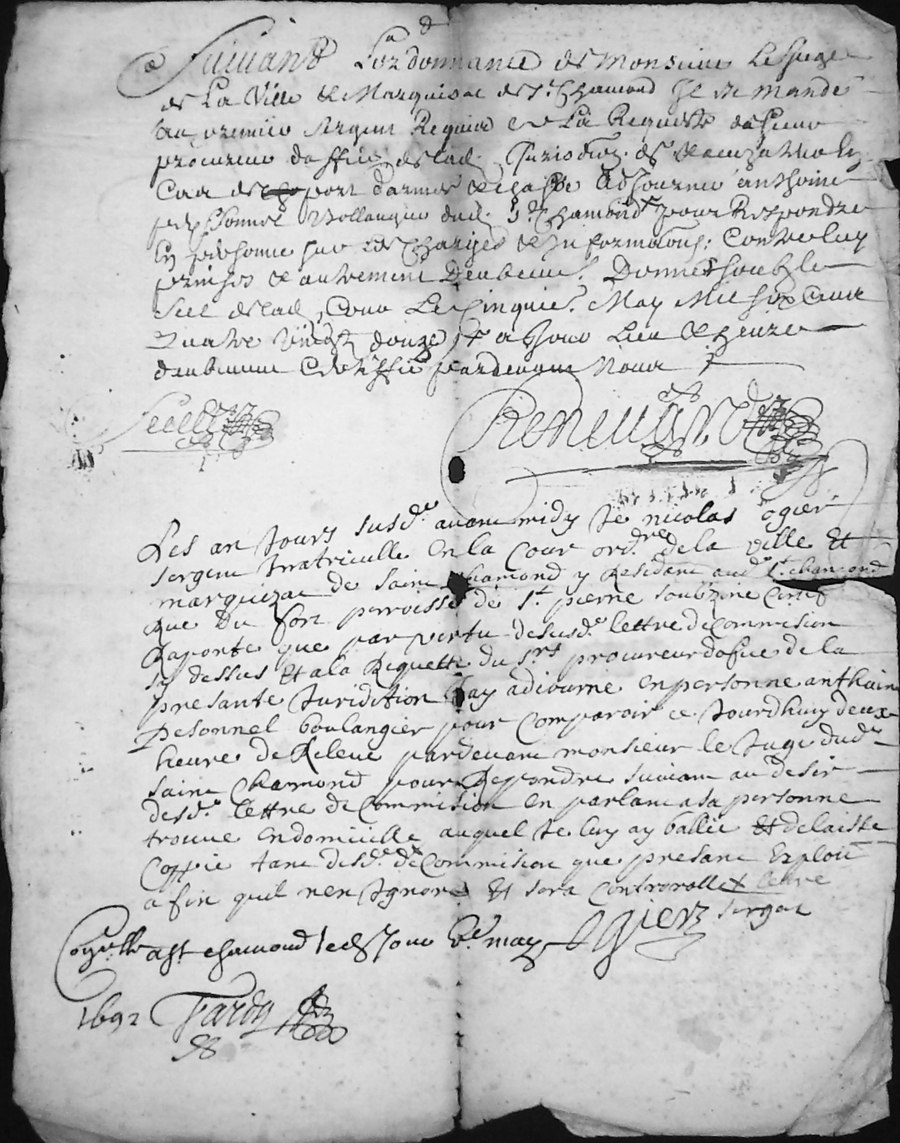 Suivant Lordonnance de Monsieur Le Juge
de La Ville & Marquisat de St Chamond Il est Mandé
au premier sergent Requis de La Requeste du sieur
procureur doffice de lad. Jurisdion de
Cas de port darmes & chasse Adjourner anthoine
pesonnel Bollangier dud. St Chamond pour Respondre
En personne sur les Charges & Informaons Contre luy
prinses & autrement Donné soubz le
Scel de lad. Cour Le Cinquie. May Mil six Cent
quatre vingtz douze & a Jour Lieu & heure
certiffié pardevant Nous
Scellé
Reneuard
Les an Jours susd. avant midy Je nicolas ogier
sergent Imatriculle en la Cour ordre de la ville Et
marquizat de saint chamond y Residant aud. St chamond
Rue du fort parroisse de St pierre soubzine certif
Raporte que par vertu desusd. lettre de Commision
sy dessus Et a la Requette du Sr procureur dofice de la
presante Juridition Jay adiourne en personne anthoine
Pesonnel boulangier pour Comparoir ce Jourdhuy deux
heure de Releve pardevant monsieur le Juge dud.
saint Chamond pour Repondre suivant au desir
desd. lettre de Commision en parlant a sa personne
trouve en domicille auquel Je luy ay ballie Et delaisse
Coppie tant desd. de Commision que presant Exploit
afin quil nen Ignore Et sera Controrolle
Ogier sergent
a St chamond led Jour 5e may
1692 Tardy